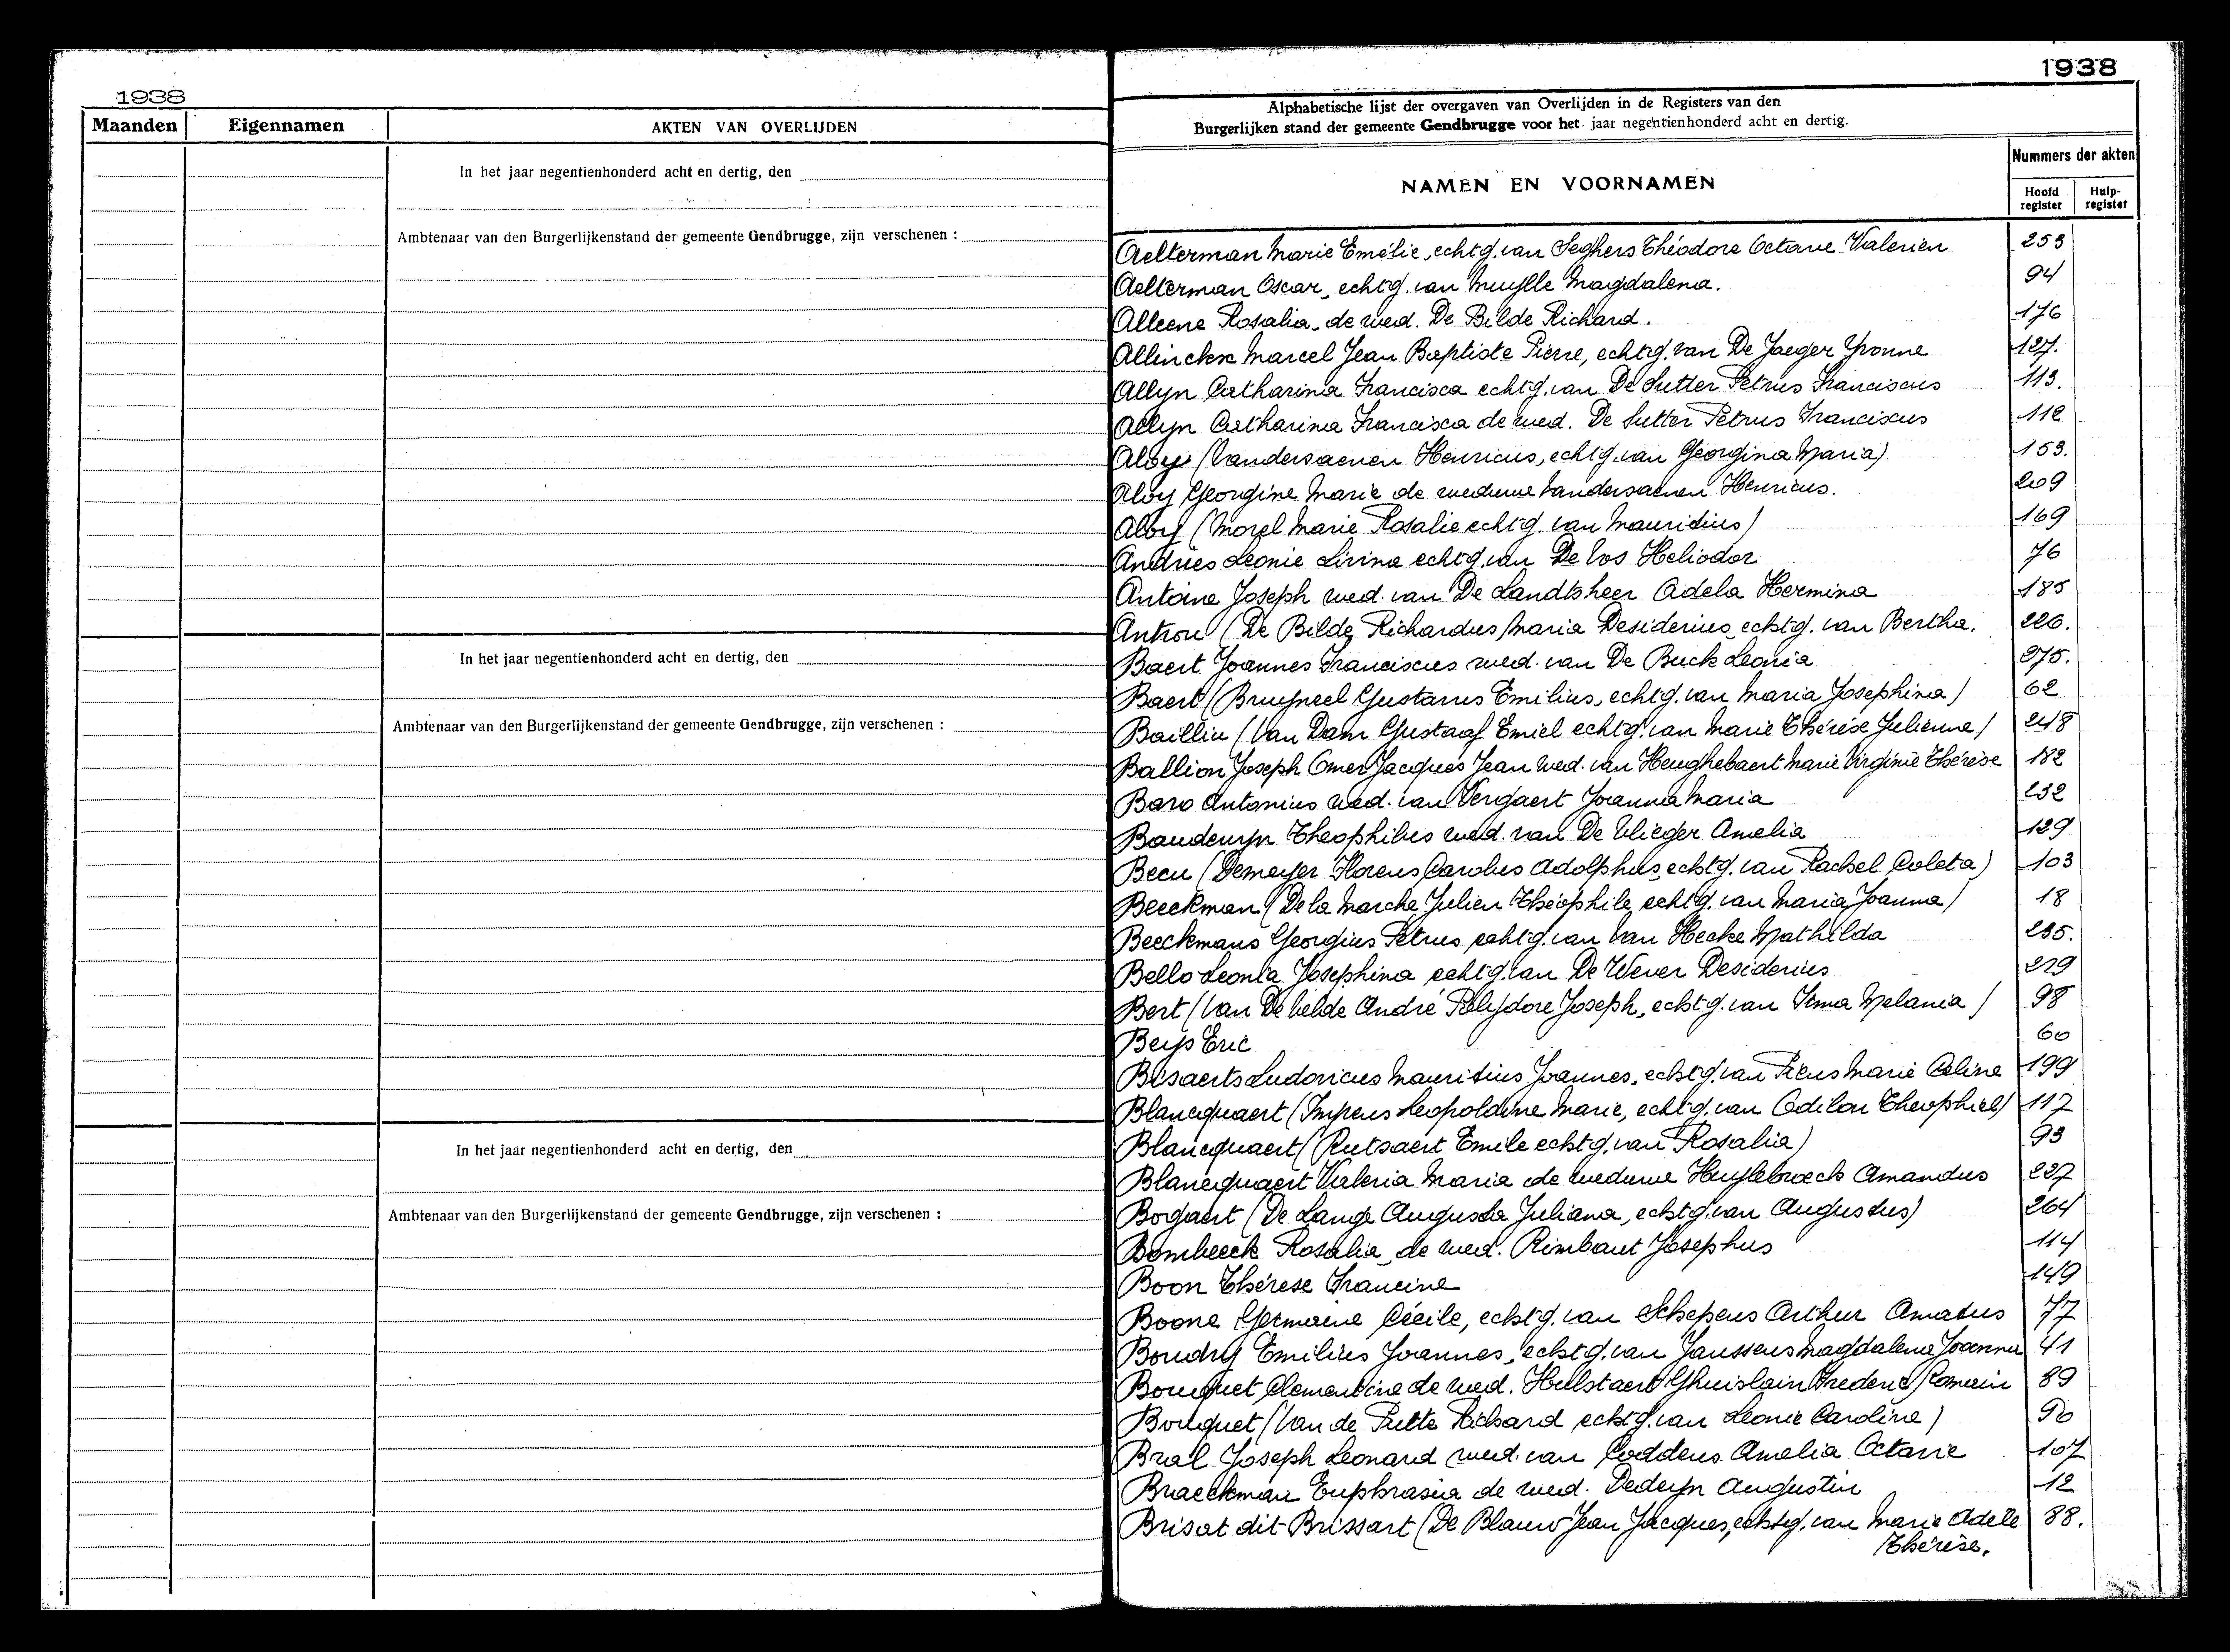 1938
Maanden Eigennamen AKTEN VAN OVERLIJDEN
In het jaar negentienhonderd acht en dertig, den
Ambtenaar van den Burgerlijkenstand der gemeente Gendbrugge, zijn verschenen :
In het jaar negentienhonderd acht en dertig, den
Ambtenaar van den Burgerlijkenstand der gemeente Gendbrugge, zijn verschenen :
In het jaar negentienhonderd acht en dertig, den
Ambtenaar van den Burgerlijkenstand der gemeente Gendbrugge, zijn verschenen :
1938
Alphabetische lijst der overgaven van Overlijden in de Registers van den
Burgerlijken stand der gemeente Gendbrugge voor het jaar negentienhonderd acht en dertig.
NAMEN EN VOORNAMEN
Nummers der akten
Hoofd register
Hulp-register
Aelterman Marie Emélie, echtg. van Seghers Théodore Octave Valerien 253
Aelterman Oscar, echtg. van Muylle Magdalena. 94
Alleene Rosalia, de wed. De Bilde Richard. 176
Allinckx Marcel Jean Baptiste Pierre, echtg. van De Jaeger Yvonne 127.
Allyn Catharina Francisca echtg. van De Sutter Petrus Franciscus 113.
Allyn Catharina Francisca de wed. De Sutter Petrus Franciscus 112
Aloy (Vandersaenen Henricus, echtg. van Georgina Maria) 153.
Aloy Georgine Marie de weduwe Vandersaenen Henricus. 209
Aloy (Morel Marie Rosalie echtg. van Mauritius) 169
Andries Leonie Livina echtg. van De Vos Heliodor 76
Antoine Joseph wed. van De Landtsheer Adela Hermina 185
Antron (De Bilde Richardus Maria Desiderius, echtg. van Bertha. 226.
Baert Joannes Franciscus wed. van De Buck Leonia 275.
Baert (Bruyneel Gustavus Emilius, echtg. van Maria Josephina) 62
Bailliu (Van Dam Gustaaf Emiel echtg. van Marie Thérèse Julienne) 248
Ballion Joseph Omer Jacques Jean wed. van Heughebaert Marie Virginie Thérèse 182
Baro Antonius wed. van Vergaert Joanna Maria 232
Baudewyn Theophilus wed. van De Vlieger Amelia 129
Becu (Demeyer Florens Carolus Adolphus, echtg. van Rachel Coleta) 103
Beeckman (De la Marche Julien Théophile, echtg. van Maria Joanna) 18
Beeckmans Georgius Petrus echtg. van Van Hecke Mathilda 235.
Bello Leonia Josephina echtg. van De Wever Desiderius 219
Bert (Van De Velde André Polydore Joseph, echtg. van Irma Melania) 98
Beys Eric 60
Bisaerts Ludovicus Mauritius Joannes, echtg. van Picus Marie Celina 199
Blancquaert (Impens Leopoldine Marie, echtg. van Odilon Theophiel) 117
Blancquaert (Rutsaert Emile echtg. van Rosalia) 93
Blancquaert Valeria Maria de weduwe Huylebroeck Amandus 227
Bogaert (De Lange Augusta Juliana, echtg. van Augustus) 264
Bombeeck Rosalia, de wed. Rimbaut Josephus 114
Boon Thérèse Francine 149
Boone Germaine Cécile, echtg. van Schepens Arthur Amatus 77
Boudry Emilius Joannes, echtg. van Janssens Magdalena Joanna 41
Bouquet Clementine de wed. Hulstaert Ghuislain Frederic Romain 89
Bouquet (Van de Putte Richard echtg. van Leonie Caroline) 90
Bral Joseph Leonard wed. van Coddens Amelia Octavie 107
Braeckman Euphrasia de wed. Dedeyn Augustin 12
Brisat dit Brissart (De Blauw Jean Jacques, echtg. van Marie Adèle 88.
Thérèse.